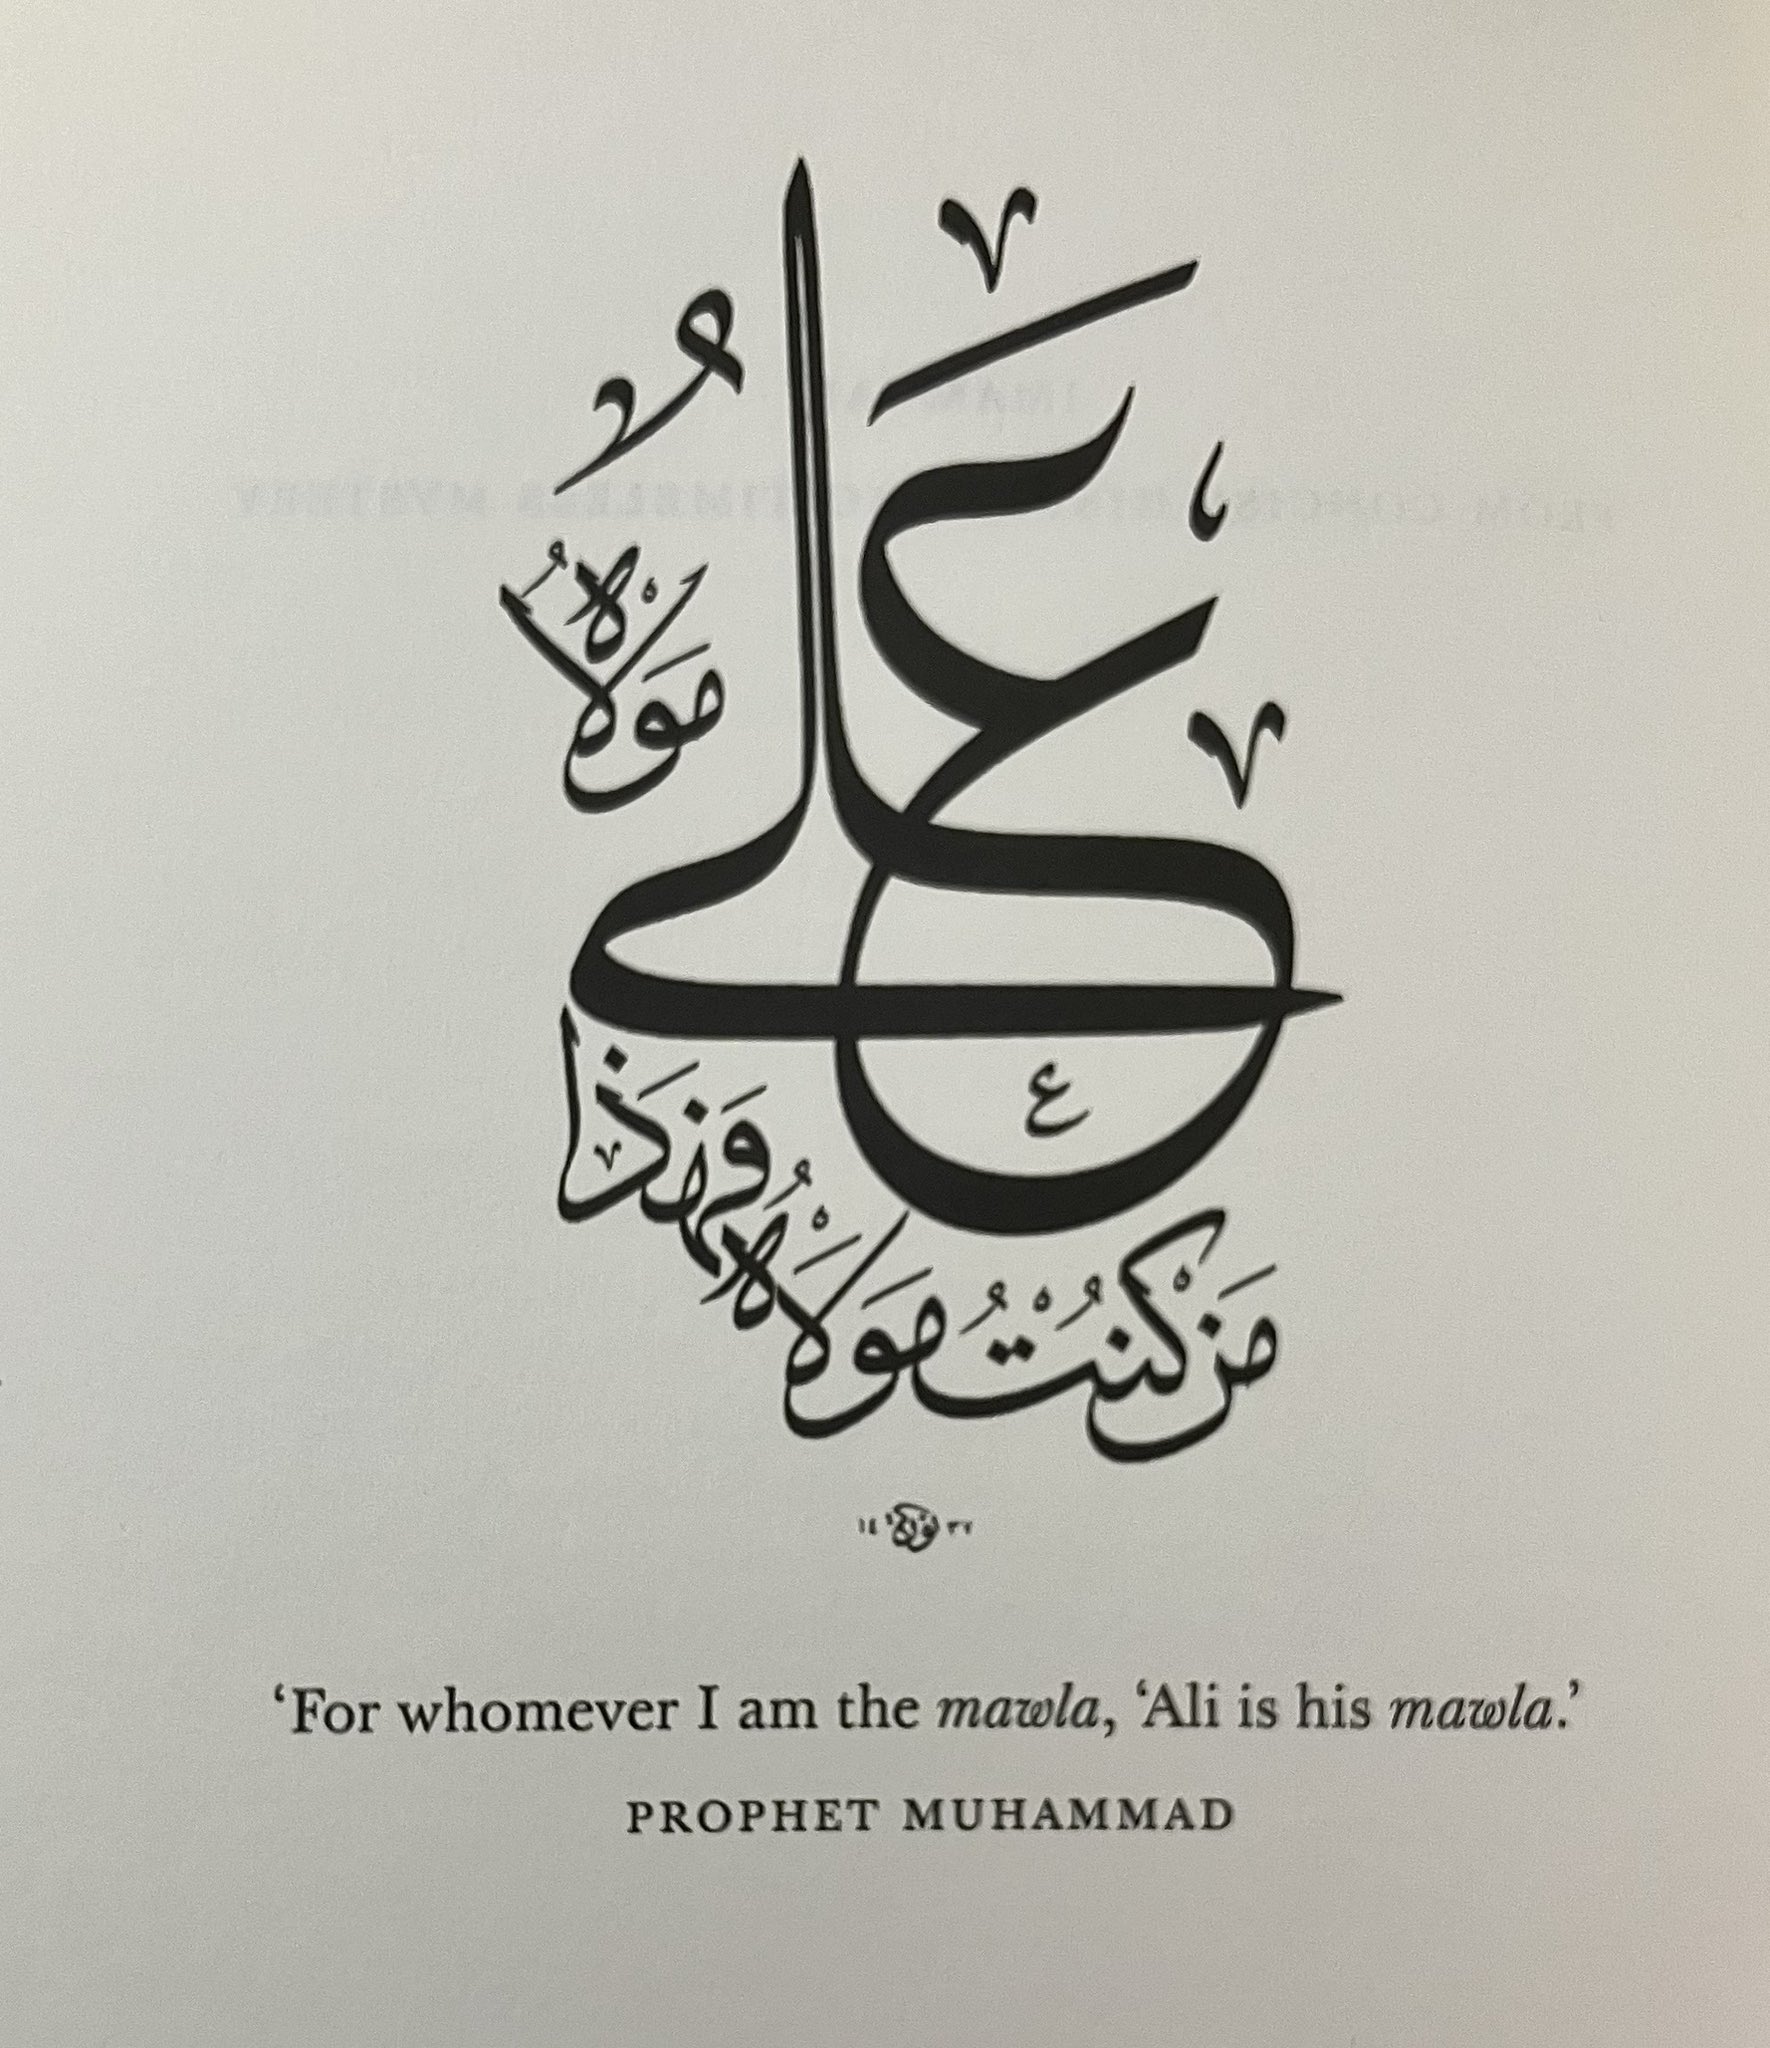 مَن كُنْتُ مَوْلَاهُ فَهَذَا
عَلِيٌّ
مَوْلَاهُ
١٤٣٧
‘For whomever I am the mawla, ‘Ali is his mawla.’
PROPHET MUHAMMAD